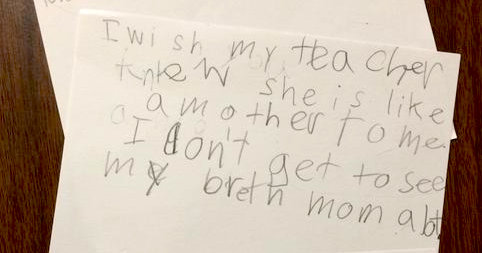 I wish my teacher
knew she is like
a mother to me
I don't get to see
my breth mom a bt